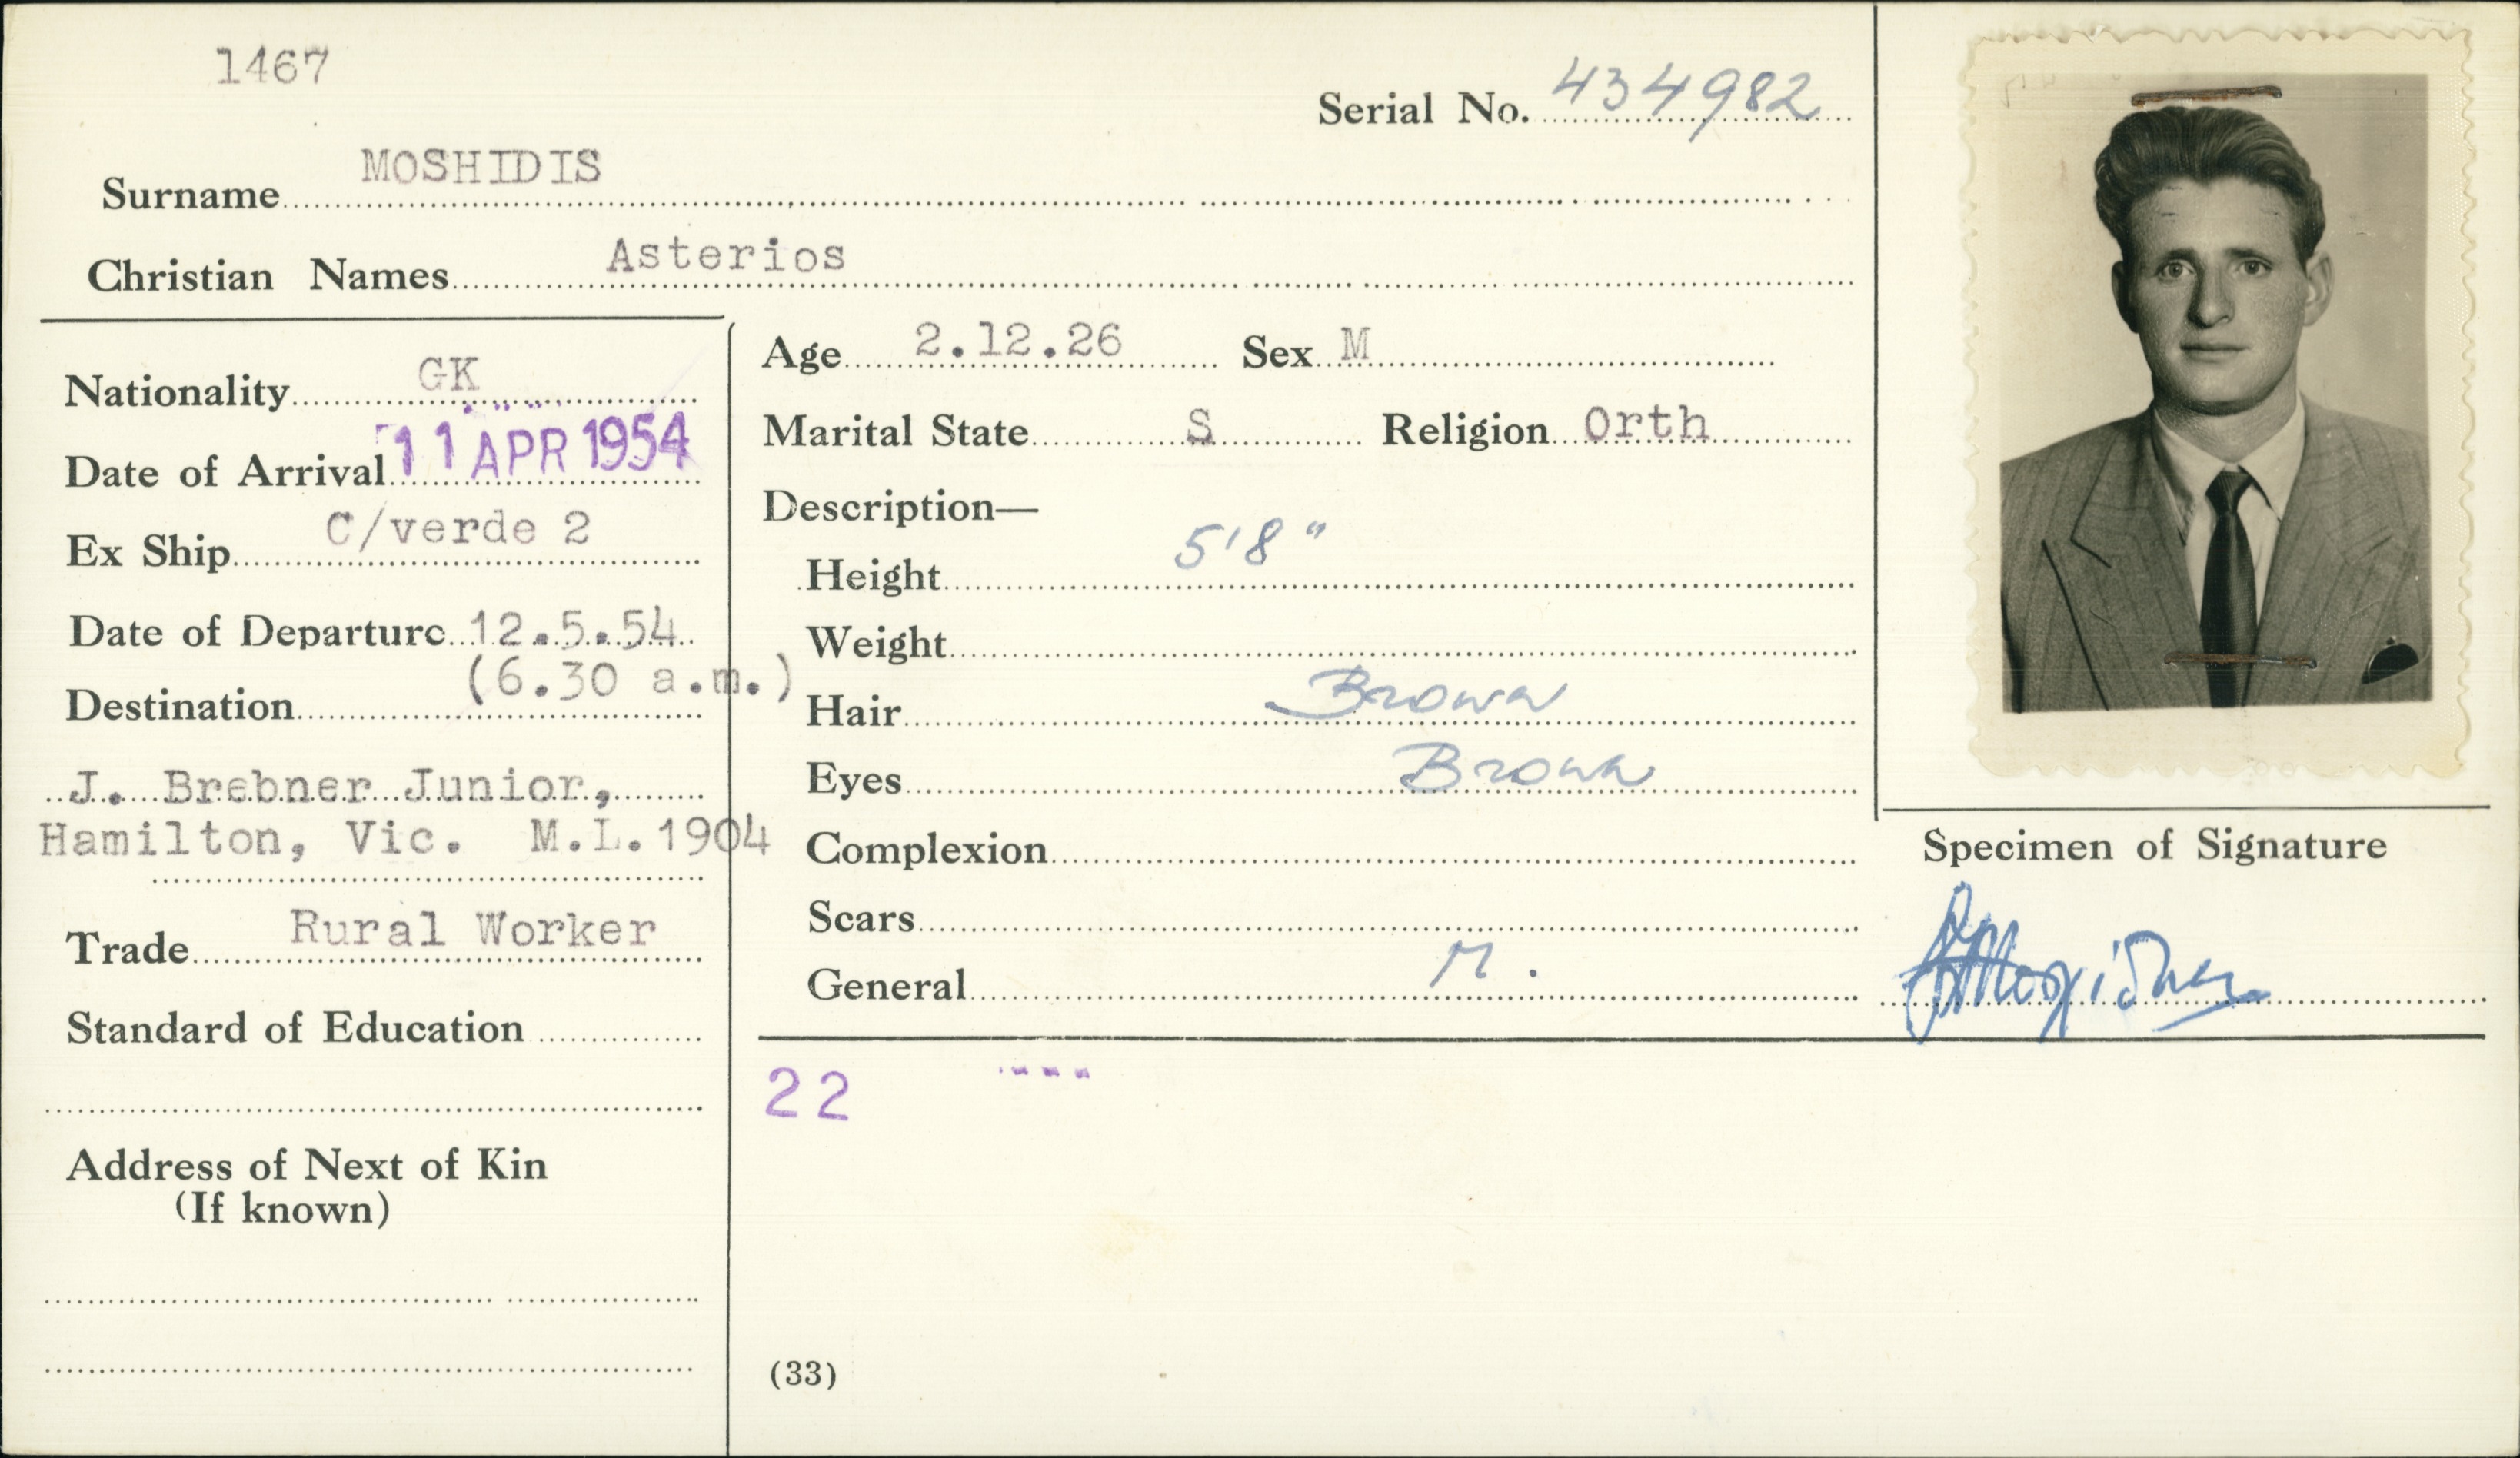 1467
Serial No. 434982
Surname MOSHIDIS
Christian Names Asterios
Nationality GK
Date of Arrival 11 APR 1954
Ex Ship C/verde 2
Date of Departure 12.5.54
(6.30 a.m.)
Destination
J. Brebner Junior,
Hamilton, Vic. M.L.1904
Trade Rural Worker
Standard of Education
Address of Next of Kin
(If known)
Age 2.12.26 Sex M
Marital State S Religion Orth
Description—
Height 5'8"
Weight
Hair Brown
Eyes Brown
Complexion
Scars
General M.
22
(33)
Specimen of Signature